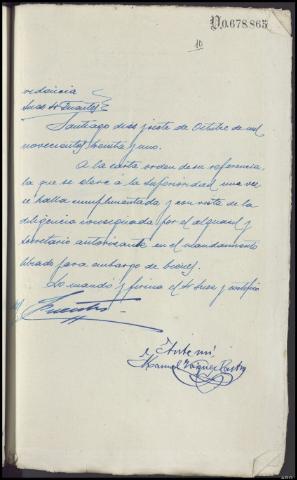 N0.678.865
10
videncia
Juez Sr Duarte
Santiago diez y siete de Octubre de mil
novecientos treinta y uno.
A la carta orden de su referencia,
la que se eleve a la Superioridad una vez
se halla cumplimentada, y con vista de la
diligencia consignada por el alguacil y
secretario autorizante en el mandamiento
librado para embargo de bienes.
Lo mandó y firma el Sr Juez y certifico
Ante mi
Manuel Vazquez